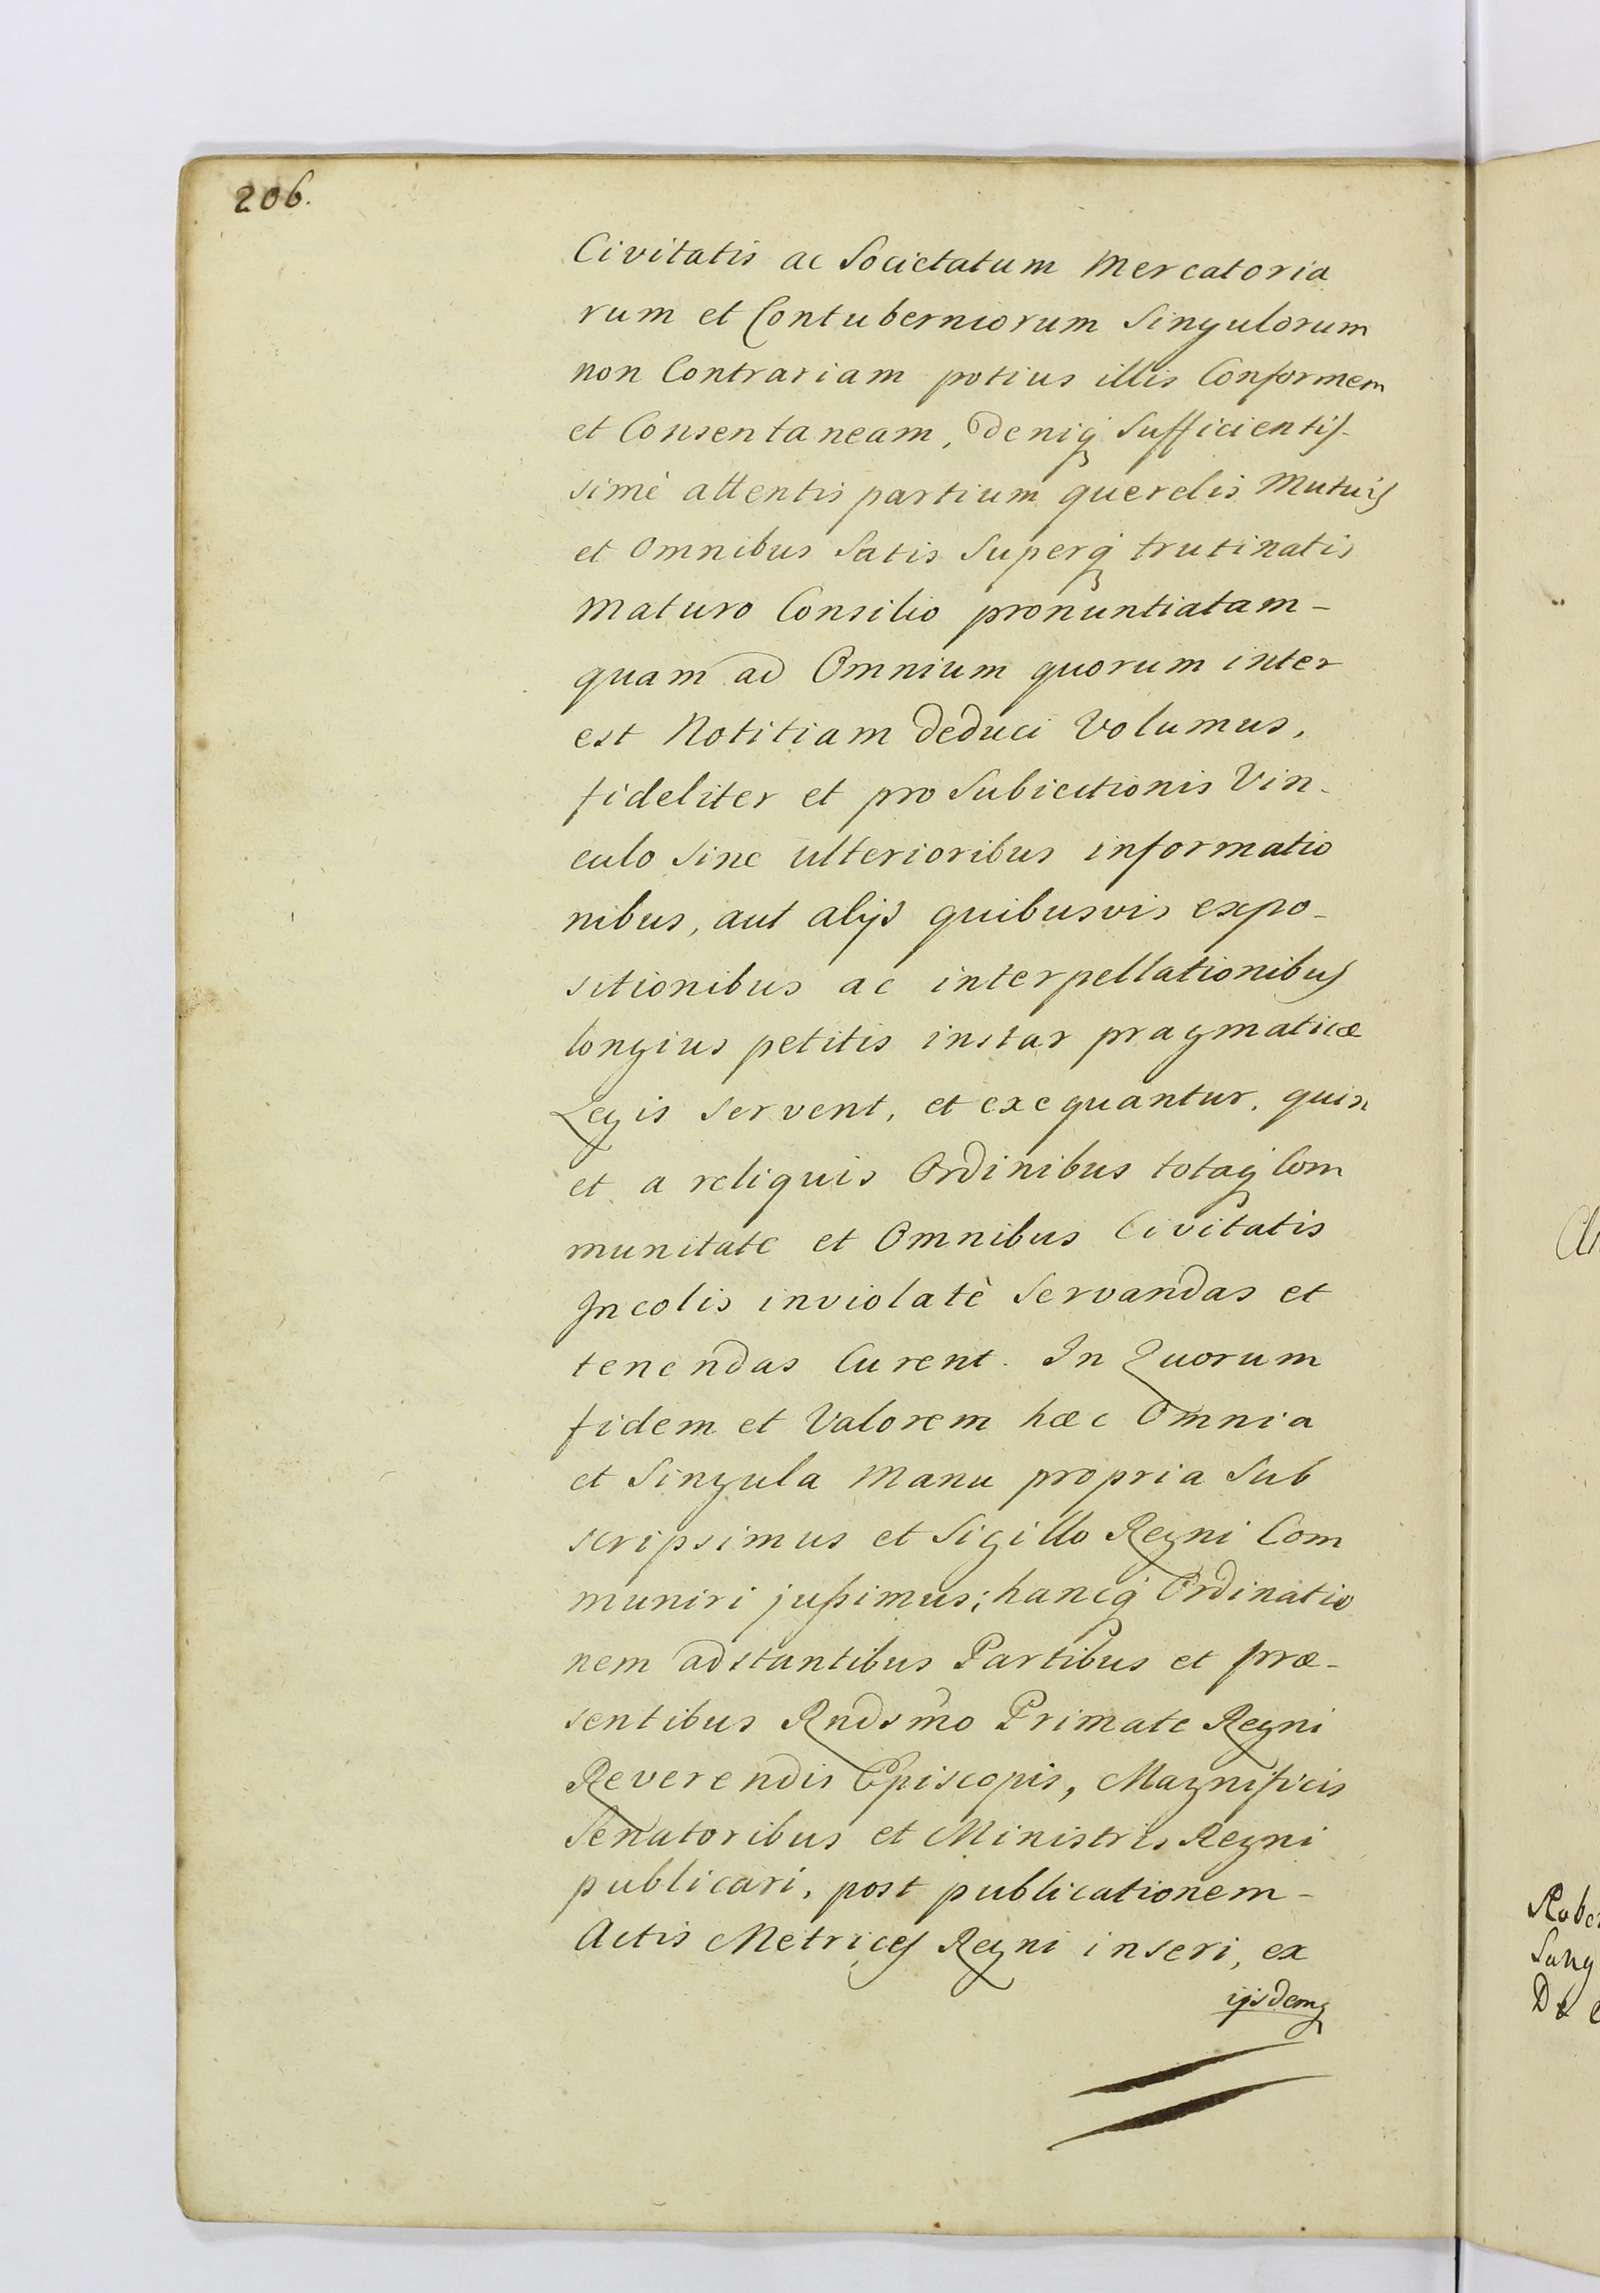 206.
Civitatis ac Societatum Mercatoria
rum et Contuberniorum Singulorum
non Contrariam potius illis Conformem
et Consentaneam, deniq Sufficientis-
simè attentis partium querelis Mutuis
et Omnibus Satis Superq trutinatis
Maturo Consilio pronuntiatam-
quam ad Omnium quorum inter
est Notitiam deduci Volumus,
fideliter et pro Subiectionis Vin-
culo Sine ulterioribus informatio
nibus, aut alijs quibusvis expo-
sitionibus ac interpellationibus
longius petitis instar pragmaticæ
Legis Servent, et exequantur, quin
et a reliquis Ordinibus totaq Com
munitate et Omnibus Civitatis
Incolis inviolatè Servandas et
tenendas Curent. In Quorum
fidem et Valorem hæc Omnia
et Singula Manu propria Sub
scripsimus et Sigillo Regni Com
muniri jussimus; hancq Ordinatio
nem adstantibus Partibus et præ-
sentibus Rndsmo Primate Regni
Reverendis Episcopis, Magnificis
Senatoribus et Ministris Regni
publicari, post publicationem-
Actis Metrices Regni inseri, ex
ijsdemq
Sang
De